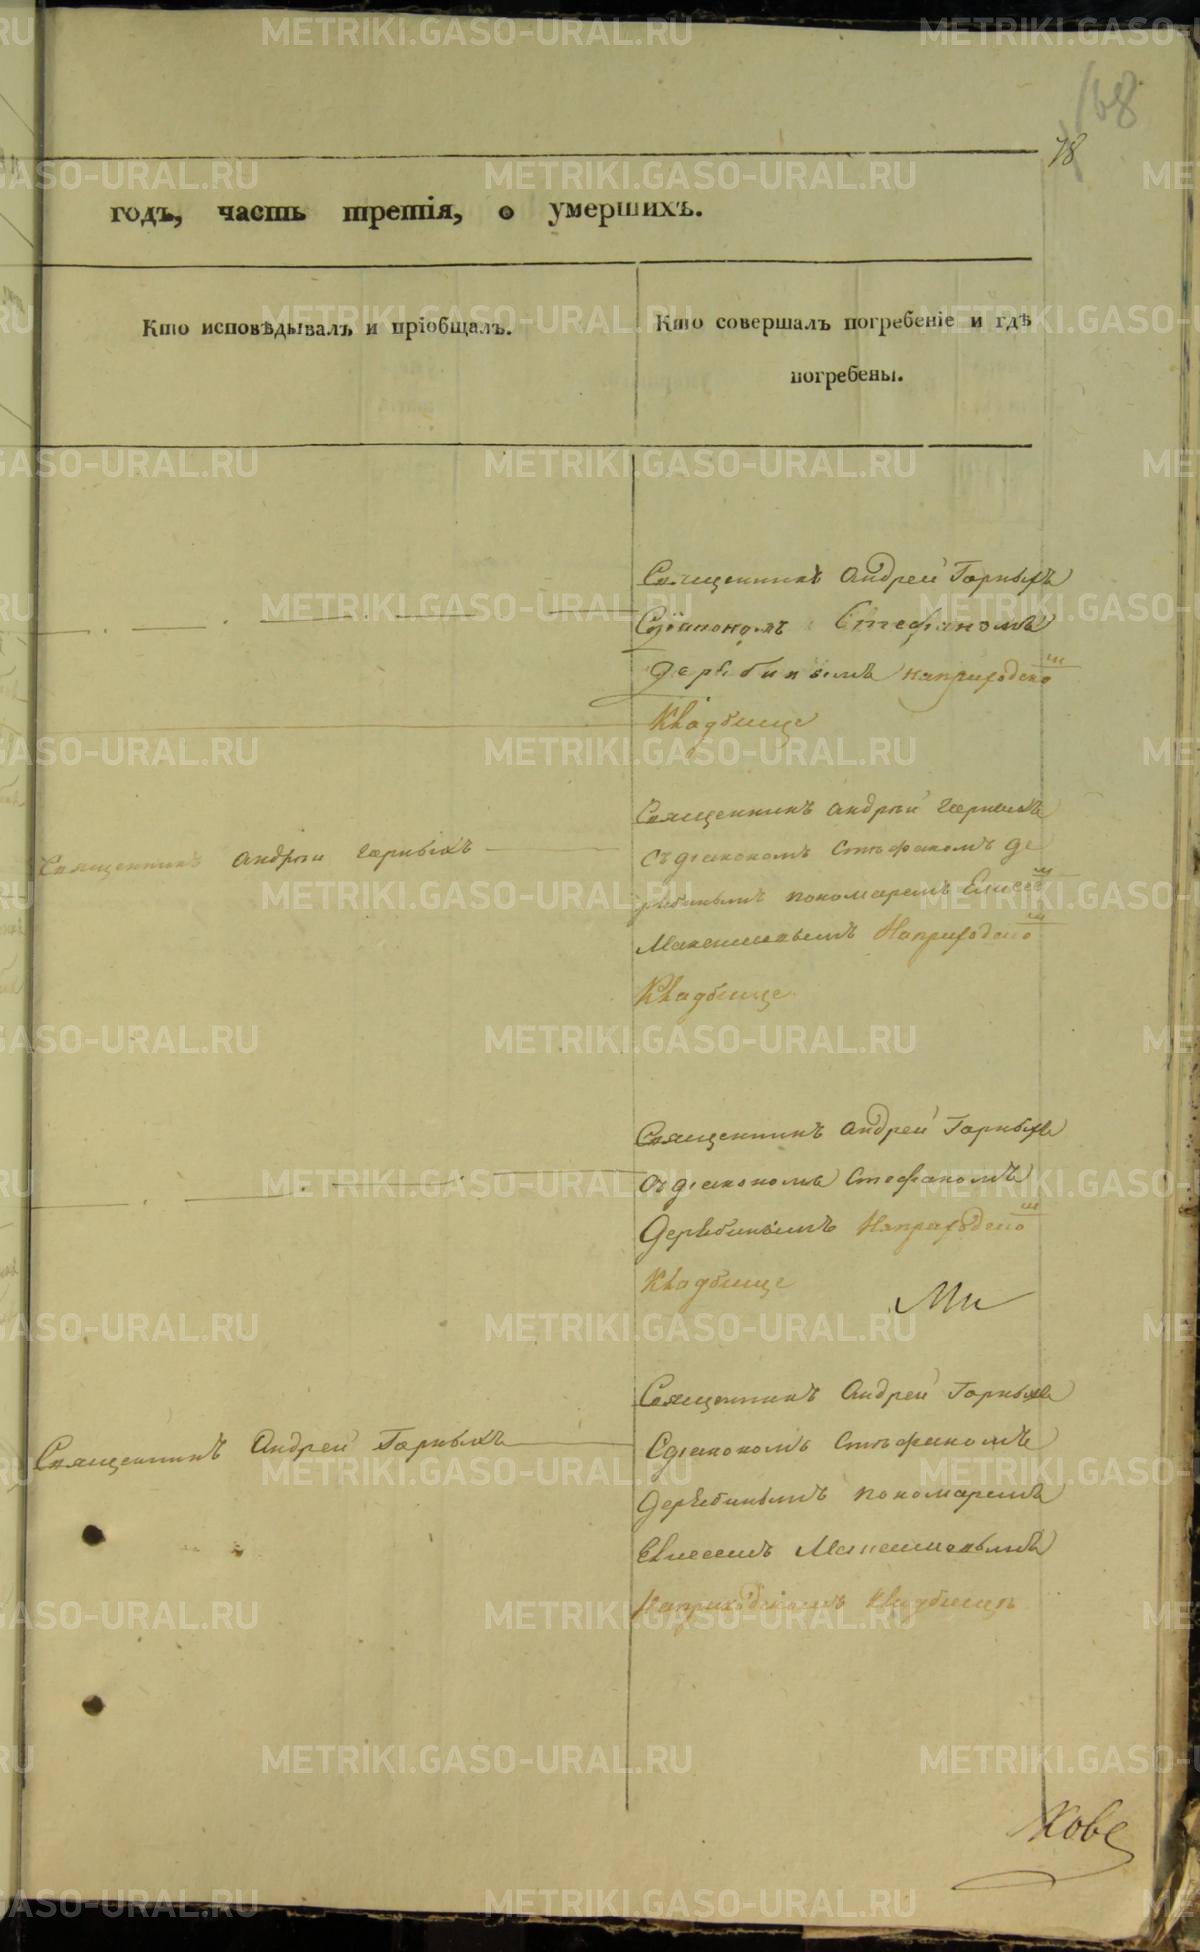 168
78
годъ, часть третія, о умершихъ.
Кто исповѣдывалъ и пріобщалъ.
Кто совершалъ погребеніе и гдѣ
погребены.
Священникъ Андрей Горныхъ
Сдіакономъ Стефаномъ
Дерябинымъ наприходско
м
Кладбище
Священникъ Андрей Горныхъ
Священникъ Андрей Горныхъ
съ діакономъ Стефаномъ Де
рябинымъ пономаремъ Елисее
м
Максимовымъ Наприходско
м
Кладбище
Священникъ Андрей Горныхъ
съ діакономъ Стефаномъ
Дерябинымъ Наприходско
м
Кладбище
Ми
Священникъ Андрей Горныхъ
Священникъ Андрей Горныхъ
Сдіакономъ Стефаномъ
Дерябинымъ пономаремъ
Елисеемъ Максимовымъ
Наприходскомъ Кладбищѣ
Хове
METRIKI.GASO-URAL.RU